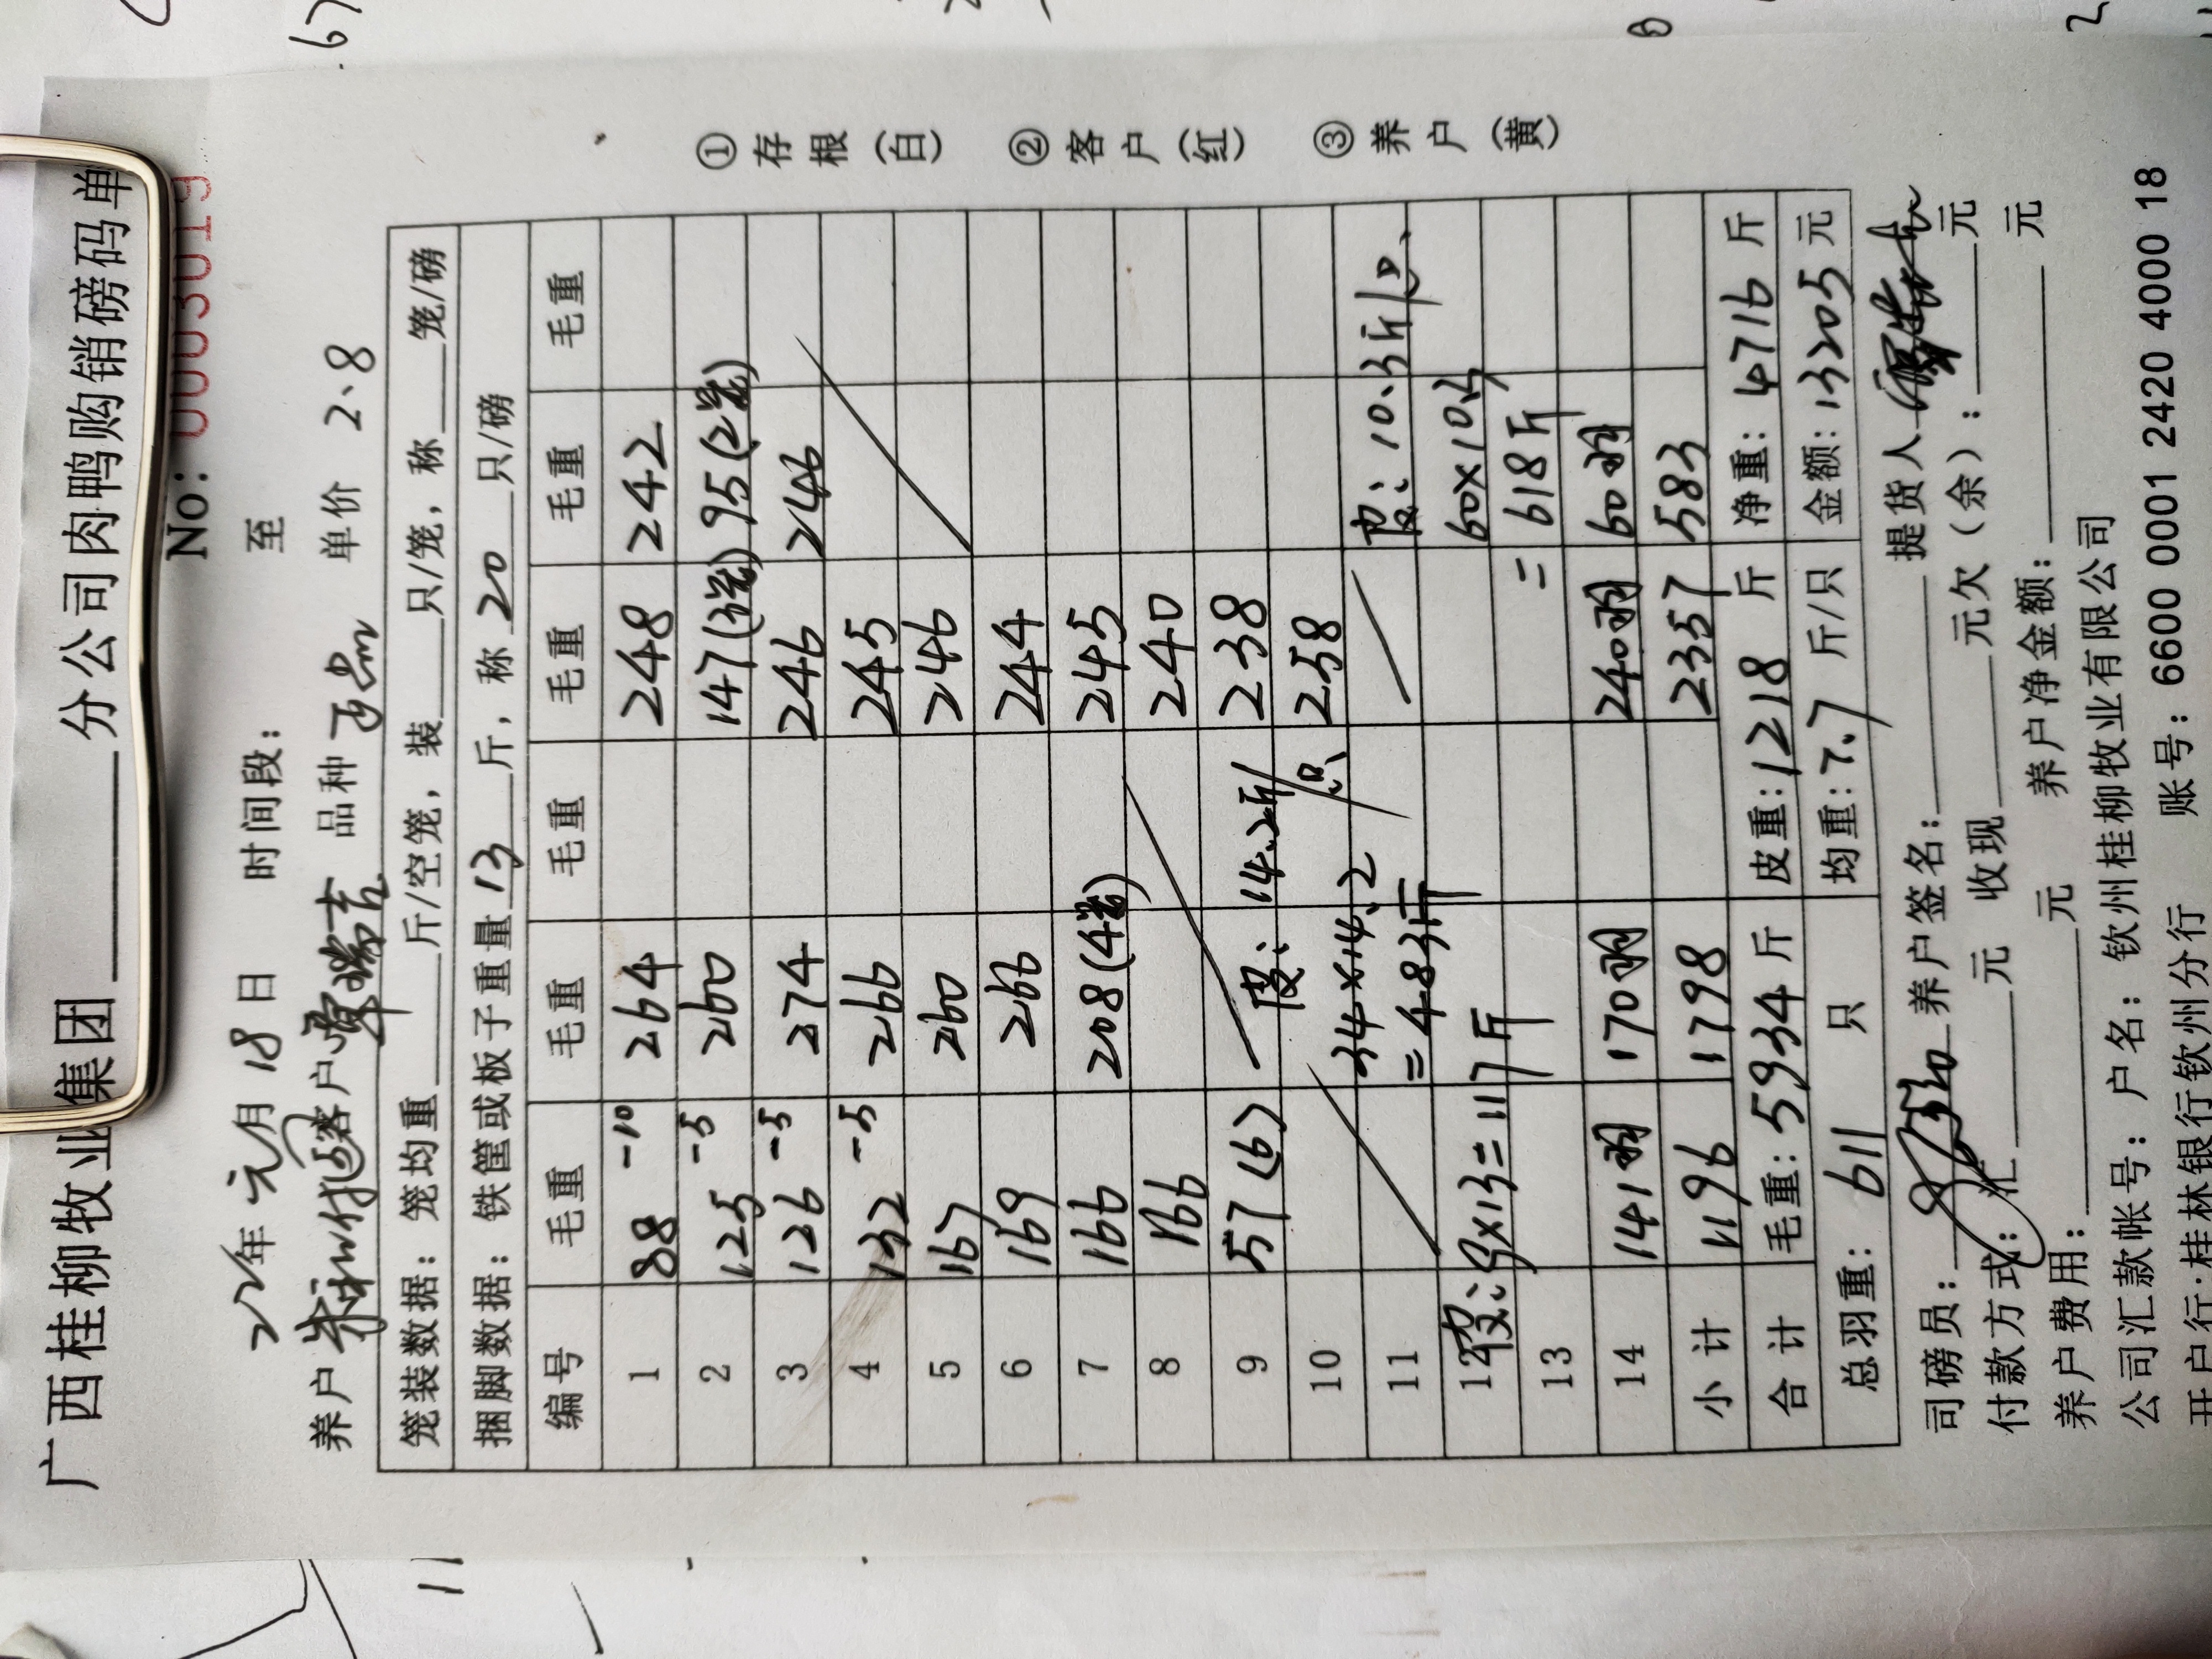 广西桂柳牧业集团______分公司肉鸭购销磅码单
No: 0003019
22年元月18日 时间段: 至
养户 客户覃瑞吉 品种 单价 2.8
笼装数据:笼均重____斤/空笼,装____只/笼,称____笼/磅
捆脚数据:铁筐或板子重量13斤,称20只/磅
编号 毛重 毛重 毛重 毛重 毛重 毛重
1 88 -10 264 248 242
2 125 -5 260 147(3笼) 95(2笼)
3 126 -5 274 246 246
4 132 -5 266 245
5 167 260 246
6 169 266 244
7 166 208(4笼) 245
8 166 240
9 57(6) 皮:14.2斤/只 238
10 258
11 34×14.2 =483斤 皮:10.3斤/只
12 皮:9×13=117斤 60×10.3
13 =618斤
14 141羽 170羽 240羽 60羽
小计 1196 1798 2357 583
合计 毛重:5934斤 皮重:1218斤 净重:4716斤
总羽重:611只 均重:7.7斤/只 金额:13205元
司磅员: 养户签名: 提货人
付款方式:汇____元 收现____元欠(余):____元
养户费用:____元 养户净金额:____元
公司汇款帐号:户名:钦州桂柳牧业有限公司
开户行:桂林银行钦州分行 账号:6600 0001 2420 4000 18
①存根(白) ②客户(红) ③养户(黄)